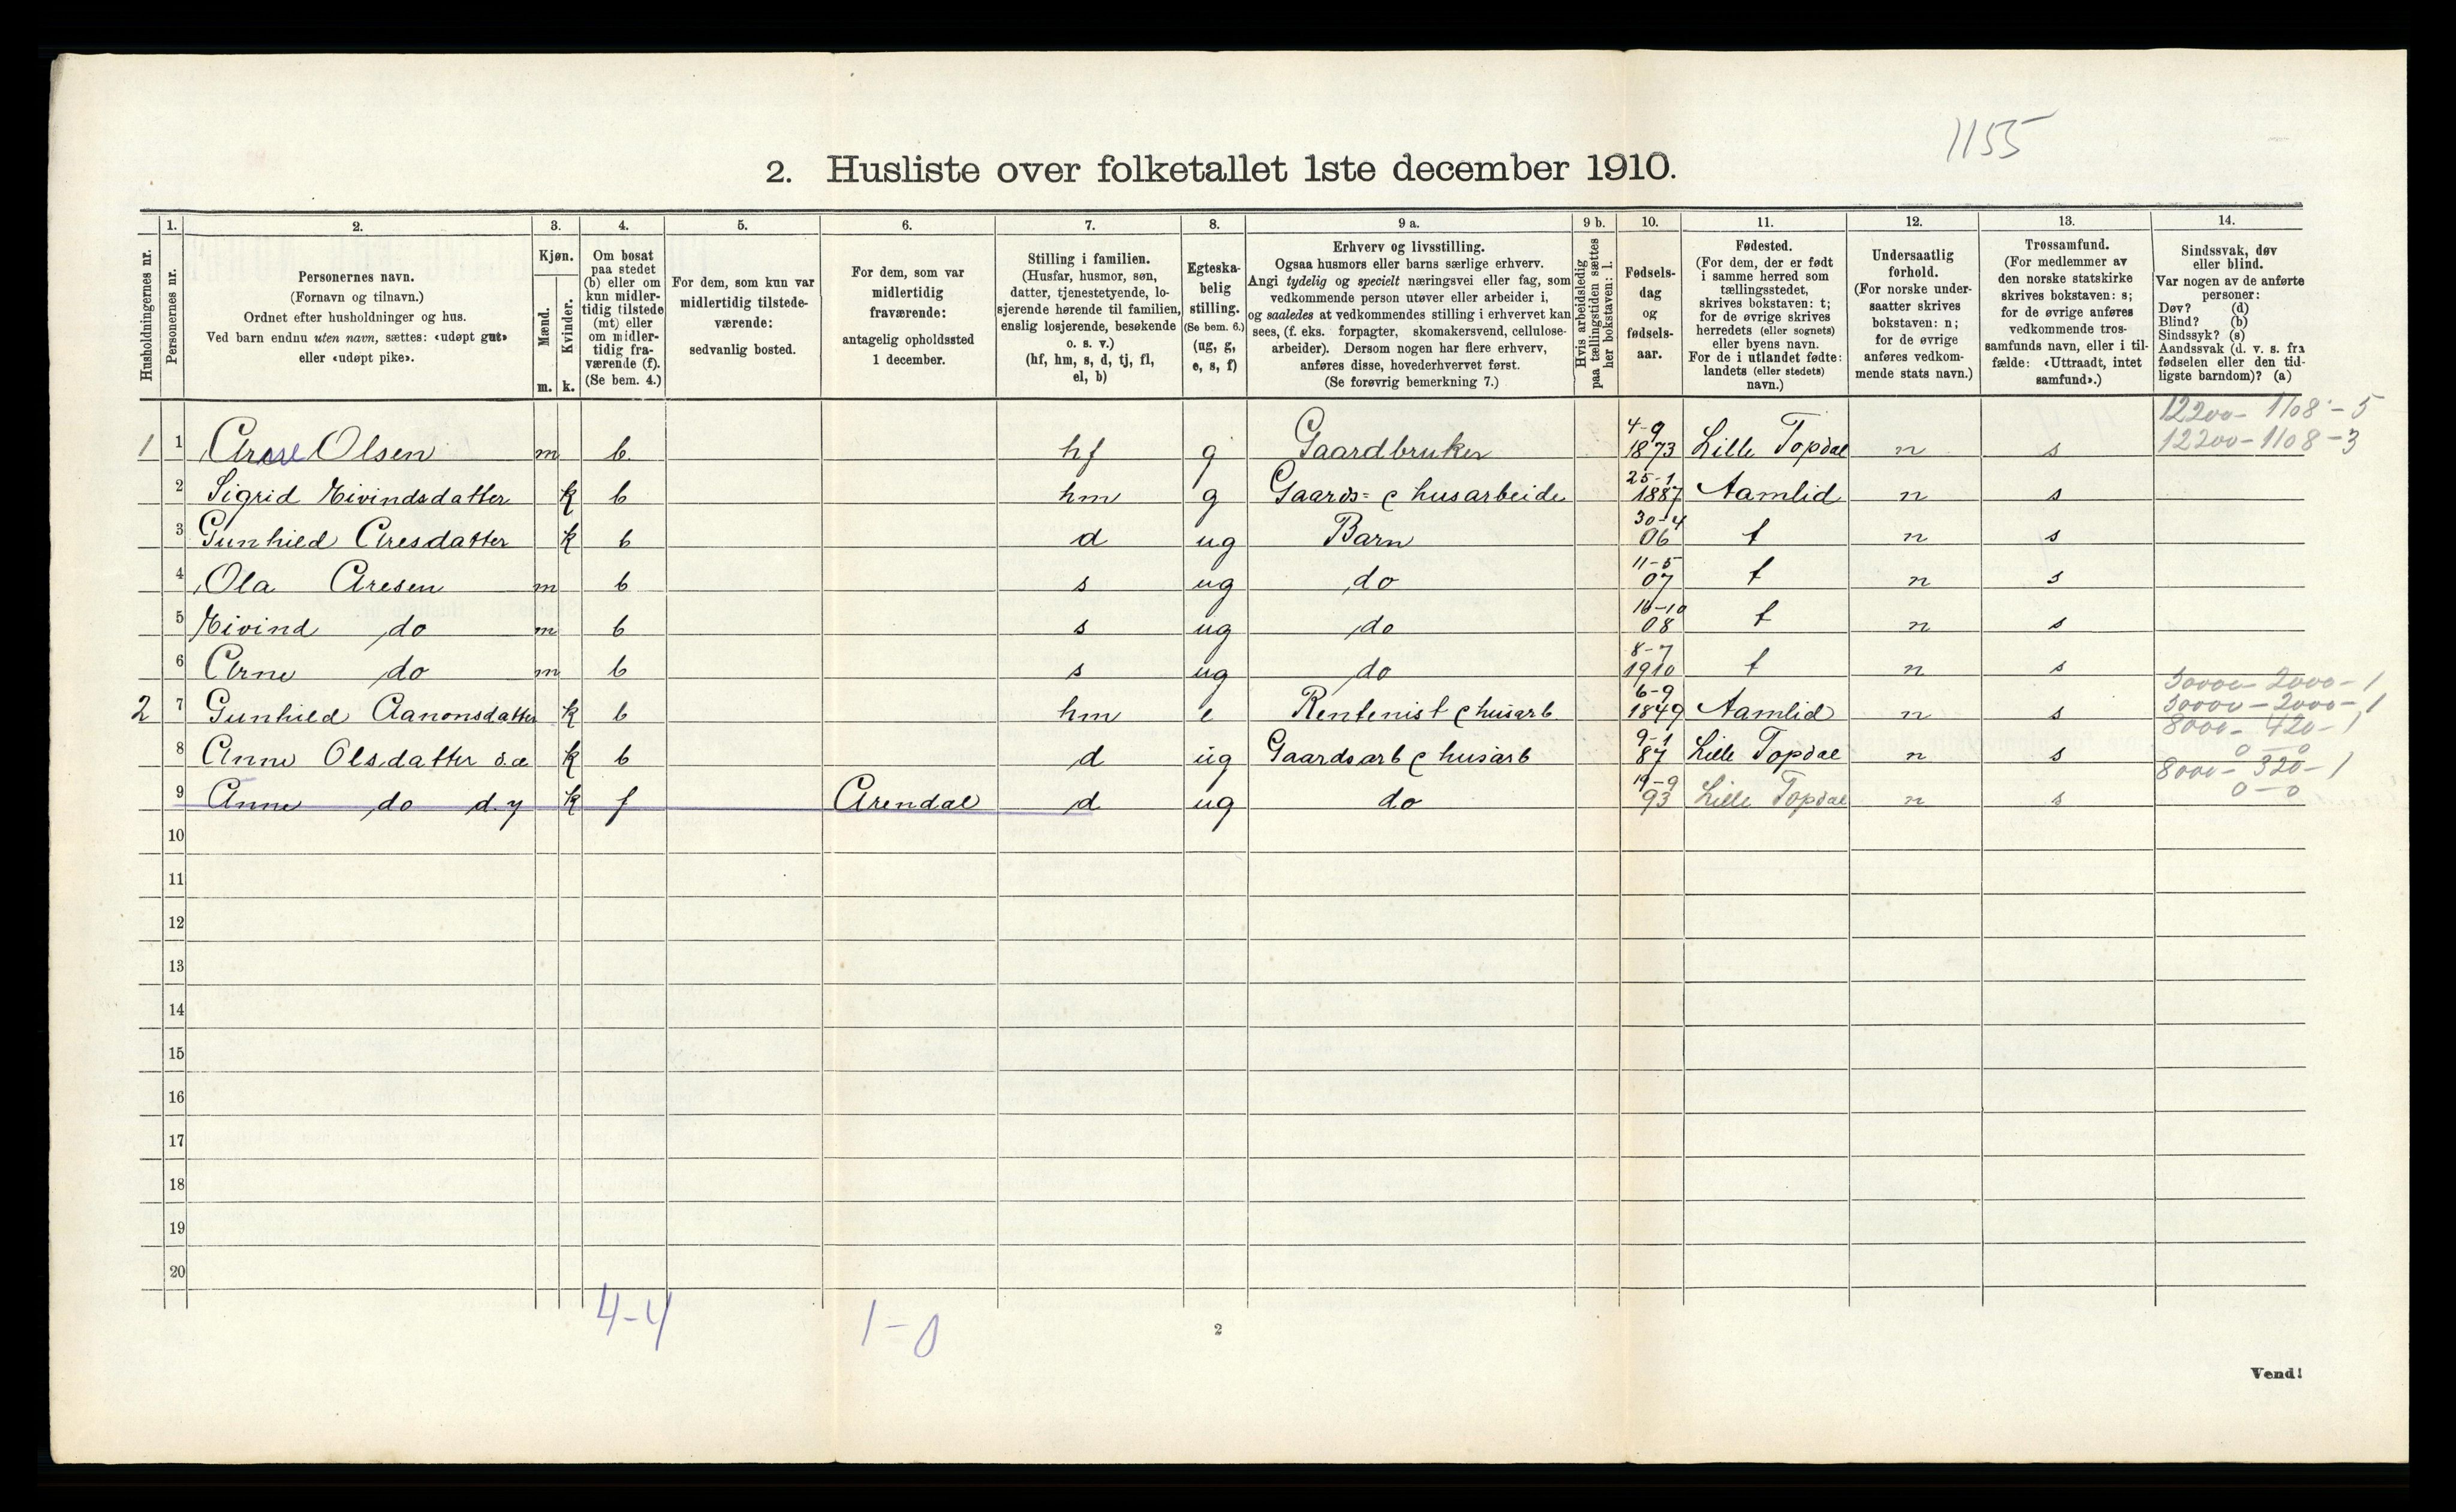 1155
2. Husliste over folketallet 1ste december 1910.
Husholdningernes nr.
1.
Personernes nr.
2.
Personernes navn.
(Fornavn og tilnavn.)
Ordnet efter husholdninger og hus.
Ved barn endnu uten navn, sættes: «udøpt gut»
eller «udøpt pike».
3.
Kjøn.
Mænd.
m.
Kvinder.
k.
4.
Om bosat
paa stedet
(b) eller om
kun midler-
tidig tilstede
(mt) eller
om midler-
tidig fra-
værende (f).
(Se bem. 4.)
5.
For dem, som kun var
midlertidig tilstede-
værende:
sedvanlig bosted.
6.
For dem, som var
midlertidig
fraværende:
antagelig opholdssted
1 december.
7.
Stilling i familien.
(Husfar, husmor, søn,
datter, tjenestetyende, lo-
sjerende hørende til familien,
enslig losjerende, besøkende
o. s. v.)
(hf, hm, s, d, tj, fl,
el, b)
8.
Egteska-
belig
stilling.
(Se bem. 6.)
(ug, g,
e, s, f)
9 a.
Erhverv og livsstilling.
Ogsaa husmors eller barns særlige erhverv.
Angi tydelig og specielt næringsvei eller fag, som
vedkommende person utøver eller arbeider i,
og saaledes at vedkommendes stilling i erhvervet kan
sees, (f. eks. forpagter, skomakersvend, cellulose-
arbeider). Dersom nogen har flere erhverv,
anføres disse, hovederhvervet først.
(Se forøvrig bemerkning 7.)
9 b.
Hvis arbeidsledig
paa tællingstiden sættes
her bokstaven: l.
10.
Fødsels-
dag
og
fødsels-
aar.
11.
Fødested.
(For dem, der er født
i samme herred som
tællingsstedet,
skrives bokstaven: t;
for de øvrige skrives
herredets (eller sognets)
eller byens navn.
For de i utlandet fødte:
landets (eller stedets)
navn.)
12.
Undersaatlig
forhold.
(For norske under-
saatter skrives
bokstaven: n;
for de øvrige
anføres vedkom-
mende stats navn.)
13.
Trossamfund.
(For medlemmer av
den norske statskirke
skrives bokstaven: s;
for de øvrige anføres
vedkommende tros-
samfunds navn, eller i til-
fælde: «Uttraadt, intet
samfund».)
14.
Sindssvak, døv
eller blind.
Var nogen av de anførte
personer:
Døv? (d)
Blind? (b)
Sindssyk? (s)
Aandssvak (d. v. s. fra
fødselen eller den tid-
ligste barndom)? (a)
12200 - 1108 - 5
12200 - 1108 - 3
1 1 Olsen m b hf g Gaardbruker 4-9 1873 Lille Topdal n s
2 Sigrid Eivindsdatter k b hm g Gaards= & husarbeide 25-1 1887 Aamlid n s
3 Gunhild Aresdatter k b d ug Barn 30-4 06 t n s
4 Ola Aresen m b s ug do 11-5 07 t n s
5 Eivind do m b s ug do 16-10 08 t n s
6 Arne do m b s ug do 8-7 1910 t n s
30000 - 2000 - 1
2 7 Gunhild Aanonsdatter k b hm e Rentenist & husarb. 6-9 1849 Aamlid n s 30000 - 2000 - 1
8000 - 420 - 1
8 Anne Olsdatter d.æ k b d ug Gaardsarb & husarb 9-1 87 Lille Topdal n s 0 - 0
8000 - 320 - 1
9 Anne do d.y k f Arendal d ug do 19-9 93 Lille Topdal n s 0 - 0
10
11
12
13
14
15
16
17
18
19
20
4-4
1-0
2
Vend!